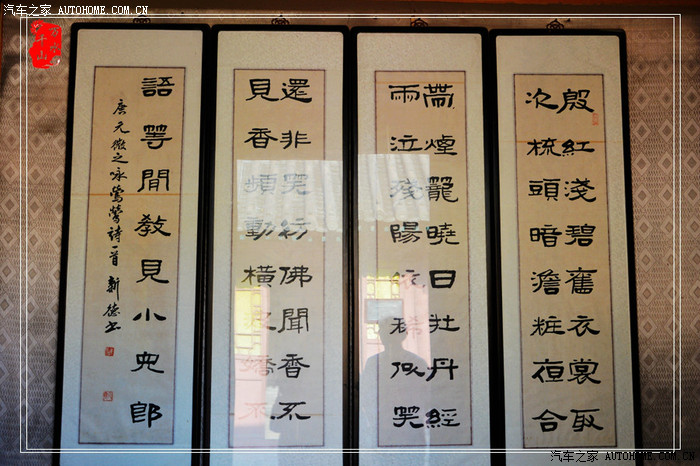 汽车之家 AUTOHOME.COM.CN
万水千山
殷紅淺碧舊衣裳取
次梳頭暗澹粧夜合
帶煙籠曉日牡丹經
雨泣殘陽依稀似笑
還非笑彷佛聞香不
見香頻動橫波嬌不
語等閒教見小兒郎
唐元微之咏鶯鶯詩一首 新德书
汽车之家 AUTOHOME.COM.CN